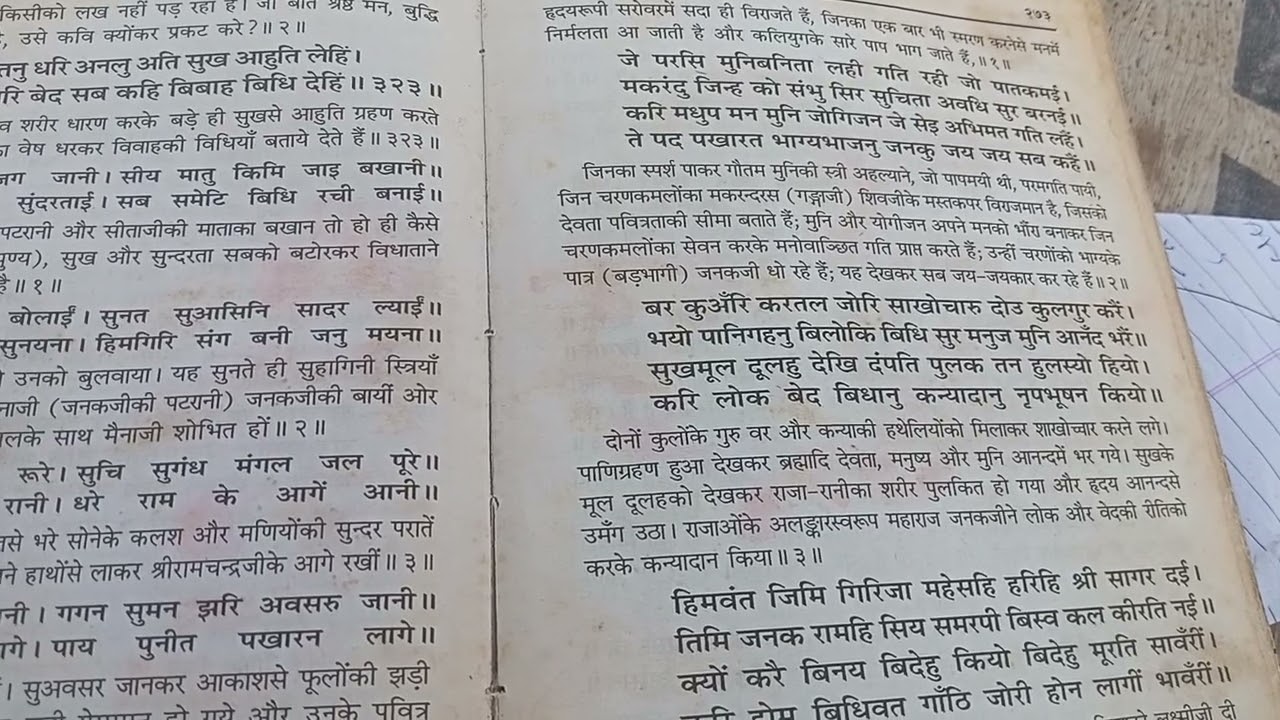 किसीको लख नहीं पड़ रहा है। जो बात श्रेष्ठ मन, बुद्धि
उसे कवि क्योंकर प्रकट करे?॥२॥
तनु धरि अनलु अति सुख आहुति लेहिं।
बेद सब कहि बिबाह बिधि देहिं॥३२३॥
शरीर धारण करके बड़े ही सुखसे आहुति ग्रहण करते
वेष धरकर विवाहकी विधियाँ बताये देते हैं॥३२३॥
जग जानी। सीय मातु किमि जाइ बखानी॥
सुंदरताई। सब समेटि बिधि रची बनाई॥
पटरानी और सीताजीकी माताका बखान तो हो ही कैसे
सुख और सुन्दरता सबको बटोरकर विधाताने
है॥१॥
बोलाईं। सुनत सुआसिनि सादर ल्याईं॥
सुनयना। हिमगिरि संग बनी जनु मयना॥
उनको बुलवाया। यह सुनते ही सुहागिनी स्त्रियाँ
(जनकजीकी पटरानी) जनकजीकी बायीं ओर
साथ मैनाजी शोभित हों॥२॥
रूरे। सुचि सुगंध मंगल जल पूरे॥
रानी। धरे राम के आगें आनी॥
भरे सोनेके कलश और मणियोंकी सुन्दर परातें
हाथोंसे लाकर श्रीरामचन्द्रजीके आगे रखीं॥३॥
गगन सुमन झरि अवसरु जानी॥
पाय पुनीत पखारन लागे॥
सुअवसर जानकर आकाशसे फूलोंकी झड़ी
हो गये और उनके पवित्र
२७३
हृदयरूपी सरोवरमें सदा ही विराजते हैं, जिनका एक बार भी स्मरण करनेसे मनमें
निर्मलता आ जाती है और कलियुगके सारे पाप भाग जाते हैं,॥१॥
जे परसि मुनिबनिता लही गति रही जो पातकमई।
मकरंदु जिन्ह को संभु सिर सुचिता अवधि सुर बरनई॥
करि मधुप मन मुनि जोगिजन जे सेइ अभिमत गति लहैं।
ते पद पखारत भाग्यभाजनु जनकु जय जय सब कहैं॥
जिनका स्पर्श पाकर गौतम मुनिकी स्त्री अहल्याने, जो पापमयी थी, परमगति पायी,
जिन चरणकमलोंका मकरन्दरस (गङ्गाजी) शिवजीके मस्तकपर विराजमान है, जिसको
देवता पवित्रताकी सीमा बताते हैं; मुनि और योगीजन अपने मनको भौंरा बनाकर जिन
चरणकमलोंका सेवन करके मनोवाञ्छित गति प्राप्त करते हैं; उन्हीं चरणोंको भाग्यके
पात्र (बड़भागी) जनकजी धो रहे हैं; यह देखकर सब जय-जयकार कर रहे हैं॥२॥
बर कुअँरि करतल जोरि साखोचारु दोउ कुलगुर करैं।
भयो पानिगहनु बिलोकि बिधि सुर मनुज मुनि आनँद भरैं॥
सुखमूल दूलहु देखि दंपति पुलक तन हुलस्यो हियो।
करि लोक बेद बिधानु कन्यादानु नृपभूषन कियो॥
दोनों कुलोंके गुरु वर और कन्याकी हथेलियोंको मिलाकर शाखोच्चार करने लगे।
पाणिग्रहण हुआ देखकर ब्रह्मादि देवता, मनुष्य और मुनि आनन्दमें भर गये। सुखके
मूल दूलहको देखकर राजा-रानीका शरीर पुलकित हो गया और हृदय आनन्दसे
उमँग उठा। राजाओंके अलङ्कारस्वरूप महाराज जनकजीने लोक और वेदकी रीतिको
करके कन्यादान किया॥३॥
हिमवंत जिमि गिरिजा महेसहि हरिहि श्री सागर दई।
तिमि जनक रामहि सिय समरपी बिस्व कल कीरति नई॥
क्यों करै बिनय बिदेहु कियो बिदेहु मूरति सावँरीं।
होम बिधिवत गाँठि जोरी होन लागीं भावँरीं॥
लक्ष्मीजी दी